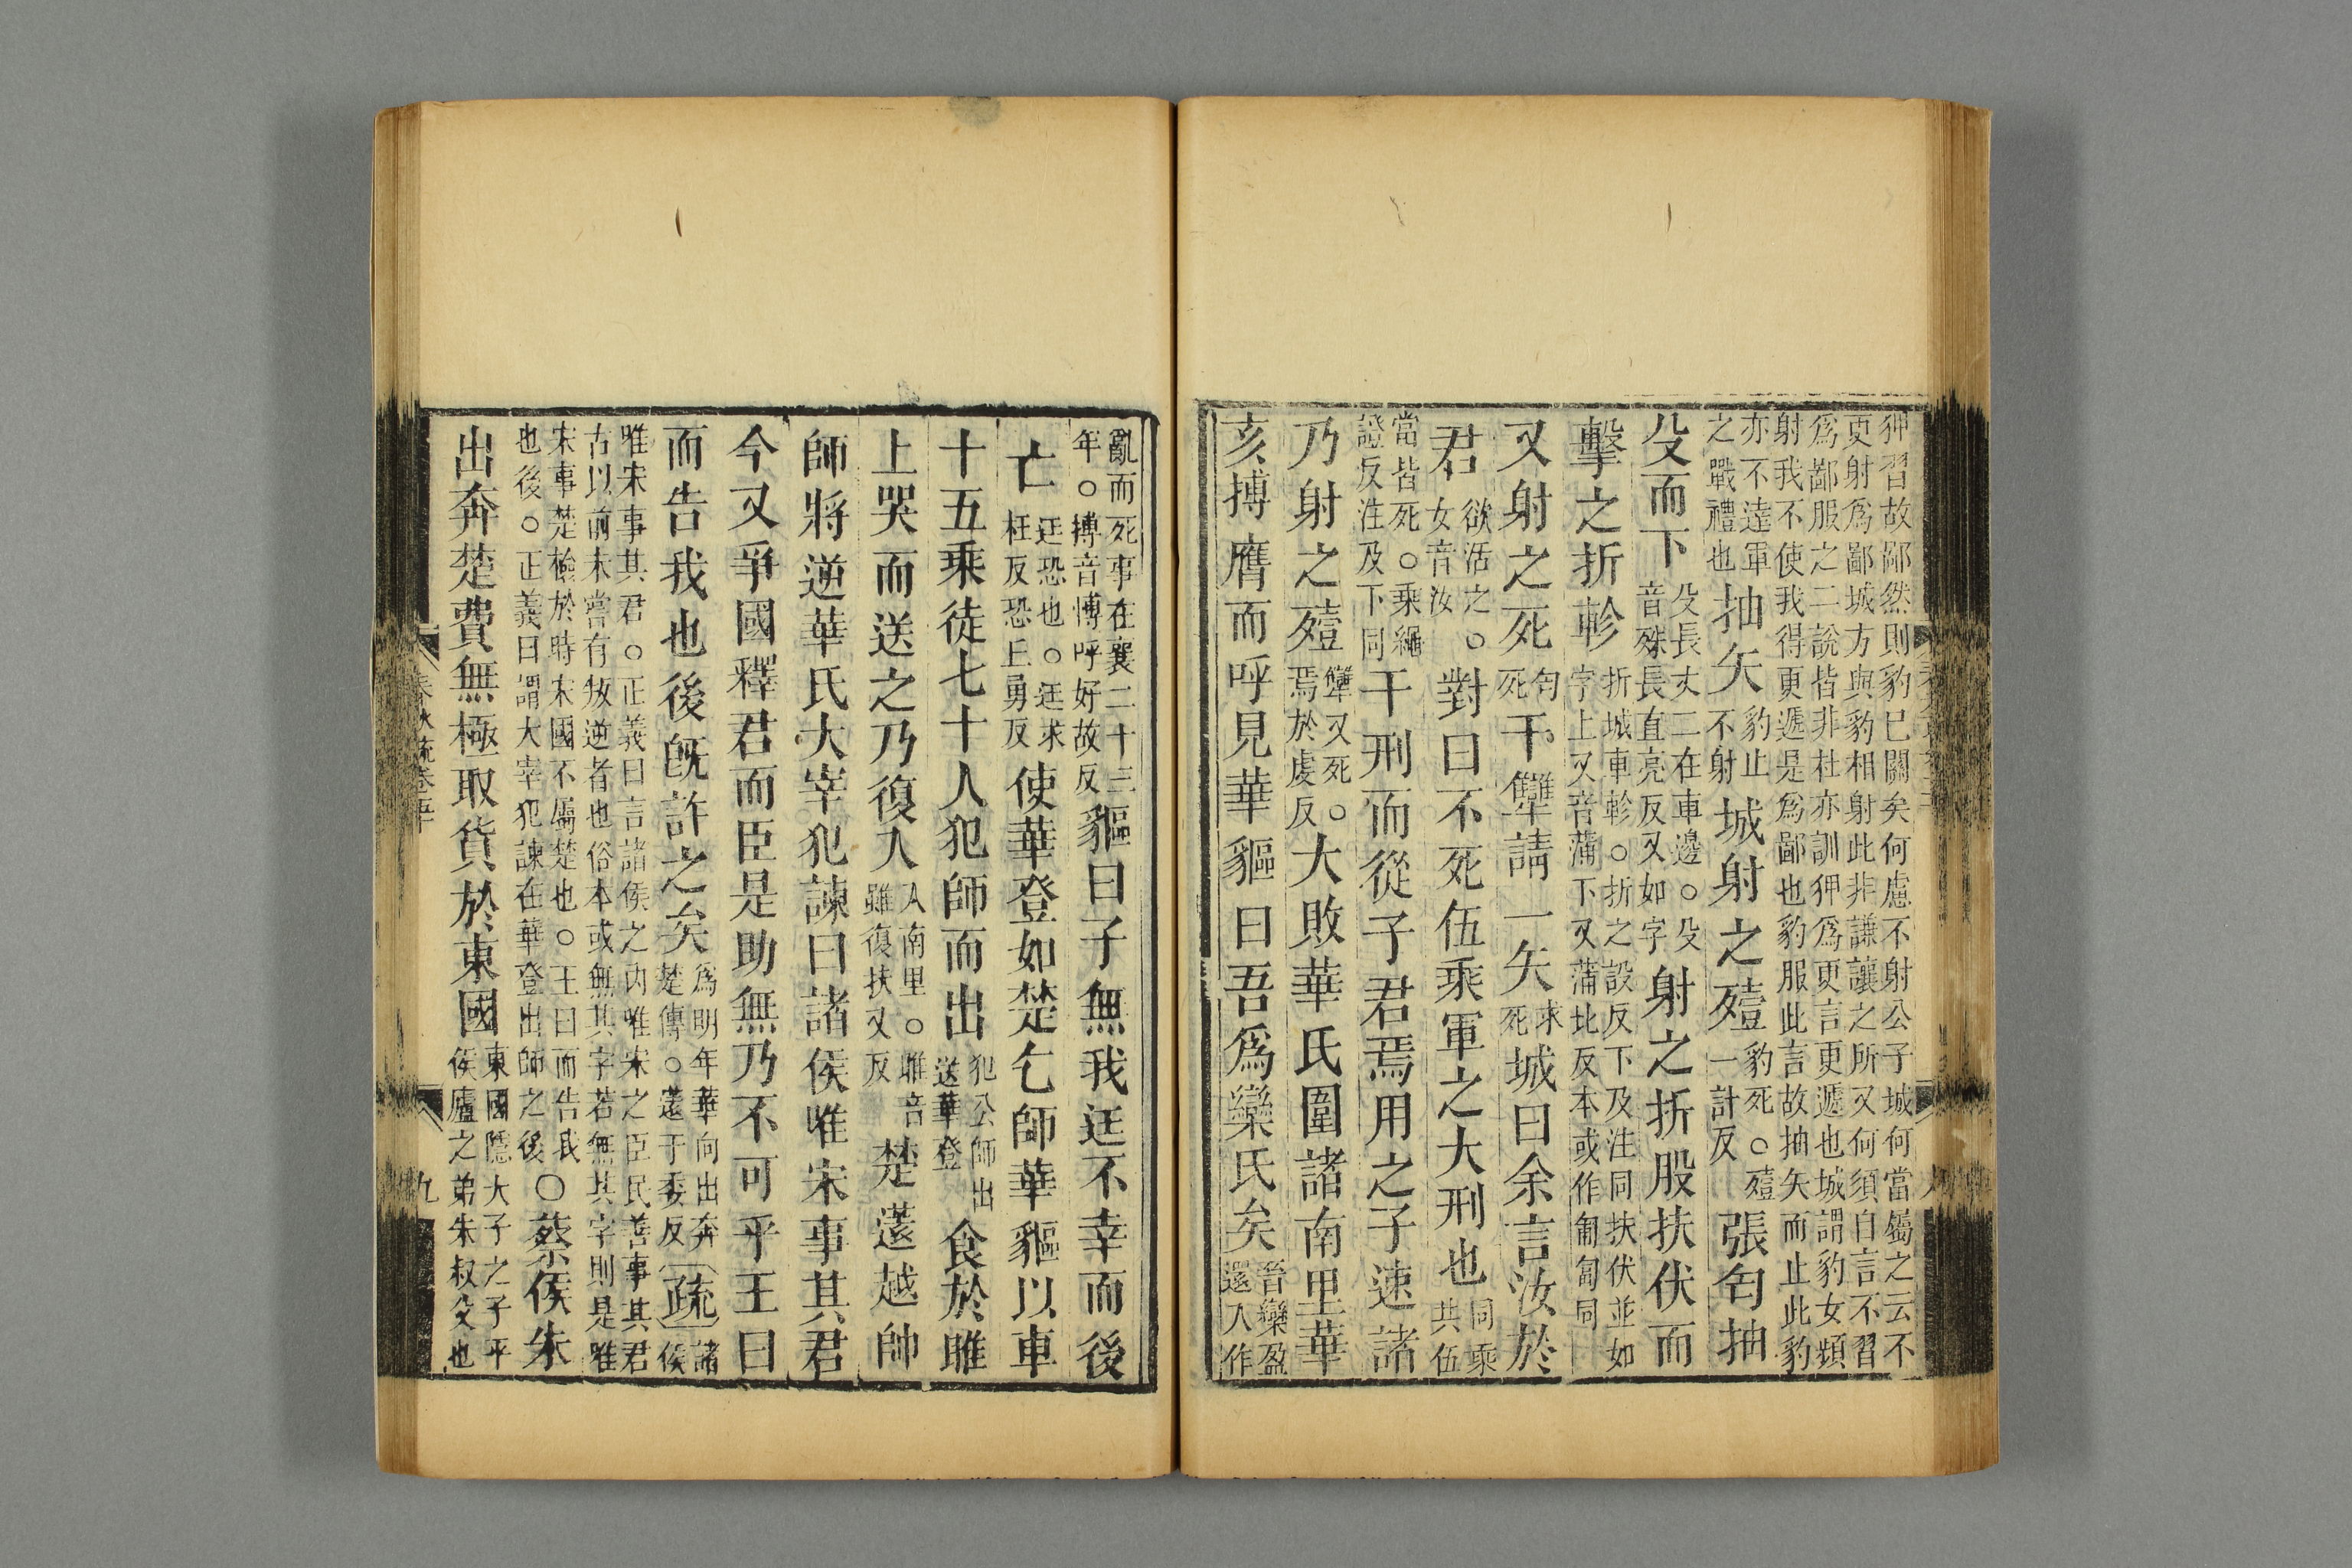 狎習故鄙然則豹已關矣何慮不射公子城何當屬之云不
更射爲鄙城方與豹相射此非謙讓之所又何須自言不習
爲鄙服之二說皆非杜亦訓狎爲更言更遞也城謂豹女頻
射我不使我得更遞是爲鄙也豹服此言故抽矢而止此豹
亦不達軍
之戰禮也
抽矢
豹止
不射
城射之殪
豹死○殪
一計反
張匄抽
殳而下
殳長丈二在車邊○殳
音殊長直亮反又如字
射之折股扶伏而
擊之折軫
折城車軫○折之設反下及注同扶伏並如
字上又音蒲下又蒲北反本或作匍匐同
又射之死
匄
死
干犨請一矢
求
死
城曰余言汝於
君
欲活之○
女音汝
對曰不死伍乘軍之大刑也
同乘
共伍
當皆死○乘繩
證反注及下同
干刑而從子君焉用之子速諸
乃射之殪
犨又死○
焉於虔反
大敗華氏圍諸南里華
亥搏膺而呼見華貙曰吾爲欒氏矣
晉欒盈
還入作
亂而死事在襄二十三
年○搏音博呼好故反
貙曰子無我迋不幸而後
亡
迋恐也○迋求
枉反恐丘勇反
使華登如楚乞師華貙以車
十五乘徒七十人犯師而出
犯公師出
送華登
食於睢
上哭而送之乃復入
入南里○睢音
雖復扶又反
楚薳越帥
師將逆華氏大宰犯諫曰諸侯唯宋事其君
今又爭國釋君而臣是助無乃不可乎王曰
而告我也後旣許之矣
爲明年華向出奔
楚傳○薳于委反
疏
諸
侯
唯宋事其君○正義曰言諸侯之内唯宋之臣民善事其君
古以前未嘗有叛逆者也俗本或無其字若無其字則是唯
宋事楚檢於時宋國不屬楚也○王曰而告我
也後○正義曰謂大宰犯諫在華登出師之後
○蔡侯朱
出奔楚費無極取貨於東國
東國隱大子之子平
侯廬之弟朱叔父也
春秋疏卷五十
九